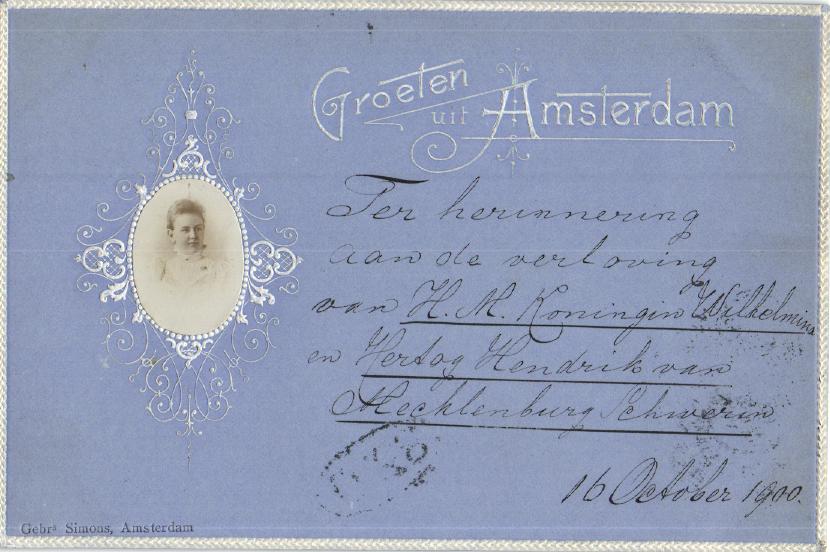 Groeten
uit Amsterdam
Ter herinnering
aan de verloving
van H. M. Koningin Wilhelmina
en Hertog Hendrik van
Mecklenburg Schwerin
16 October 1900.
Gebrs Simons, Amsterdam